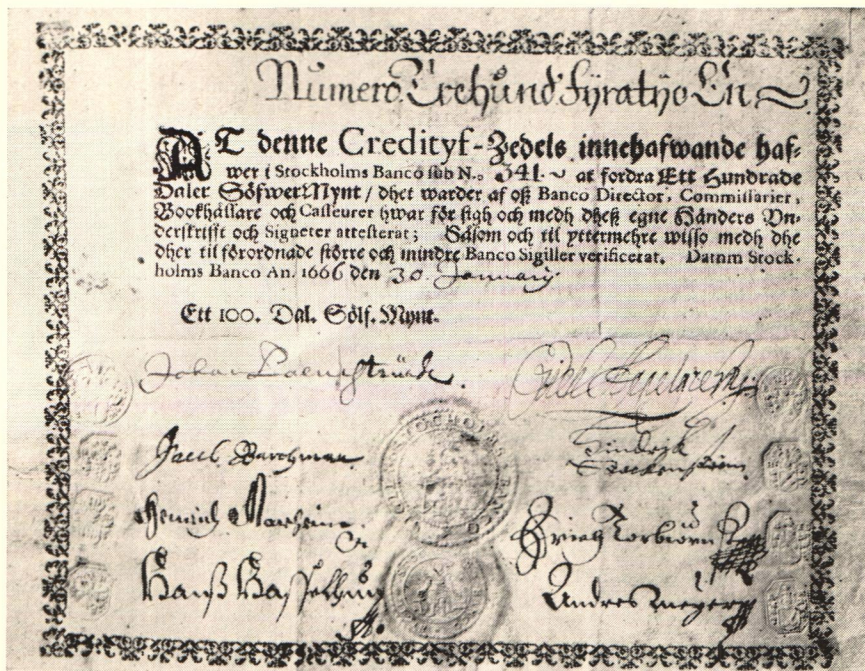 Numero Trehund Fyratyo En
AT denne Credityf-Zedels innehafwande haf-
wer i Stockholms Banco sub N.o 341 at fordra Ett Hundrade
Daler Söfwer Mynt / dhet warder af oß Banco Director, Commissarier,
Bookhållare och Casseurer hwar för sigh och medh dheß egne Händers Vn-
derskrifft och Signeter attesterat; Såsom och til yttermehre wisso medh dhe
dher til förordnade större och mindre Banco Sigiller verificerat. Datum Stock-
holms Banco An. 1666 den 30. January
Ett 100. Dal. Sölf. Mynt.
Johan Palmstruch.
Hindrich
Jacob Barchman
Henrich
Hanß Hasselhun
Andres Meyer